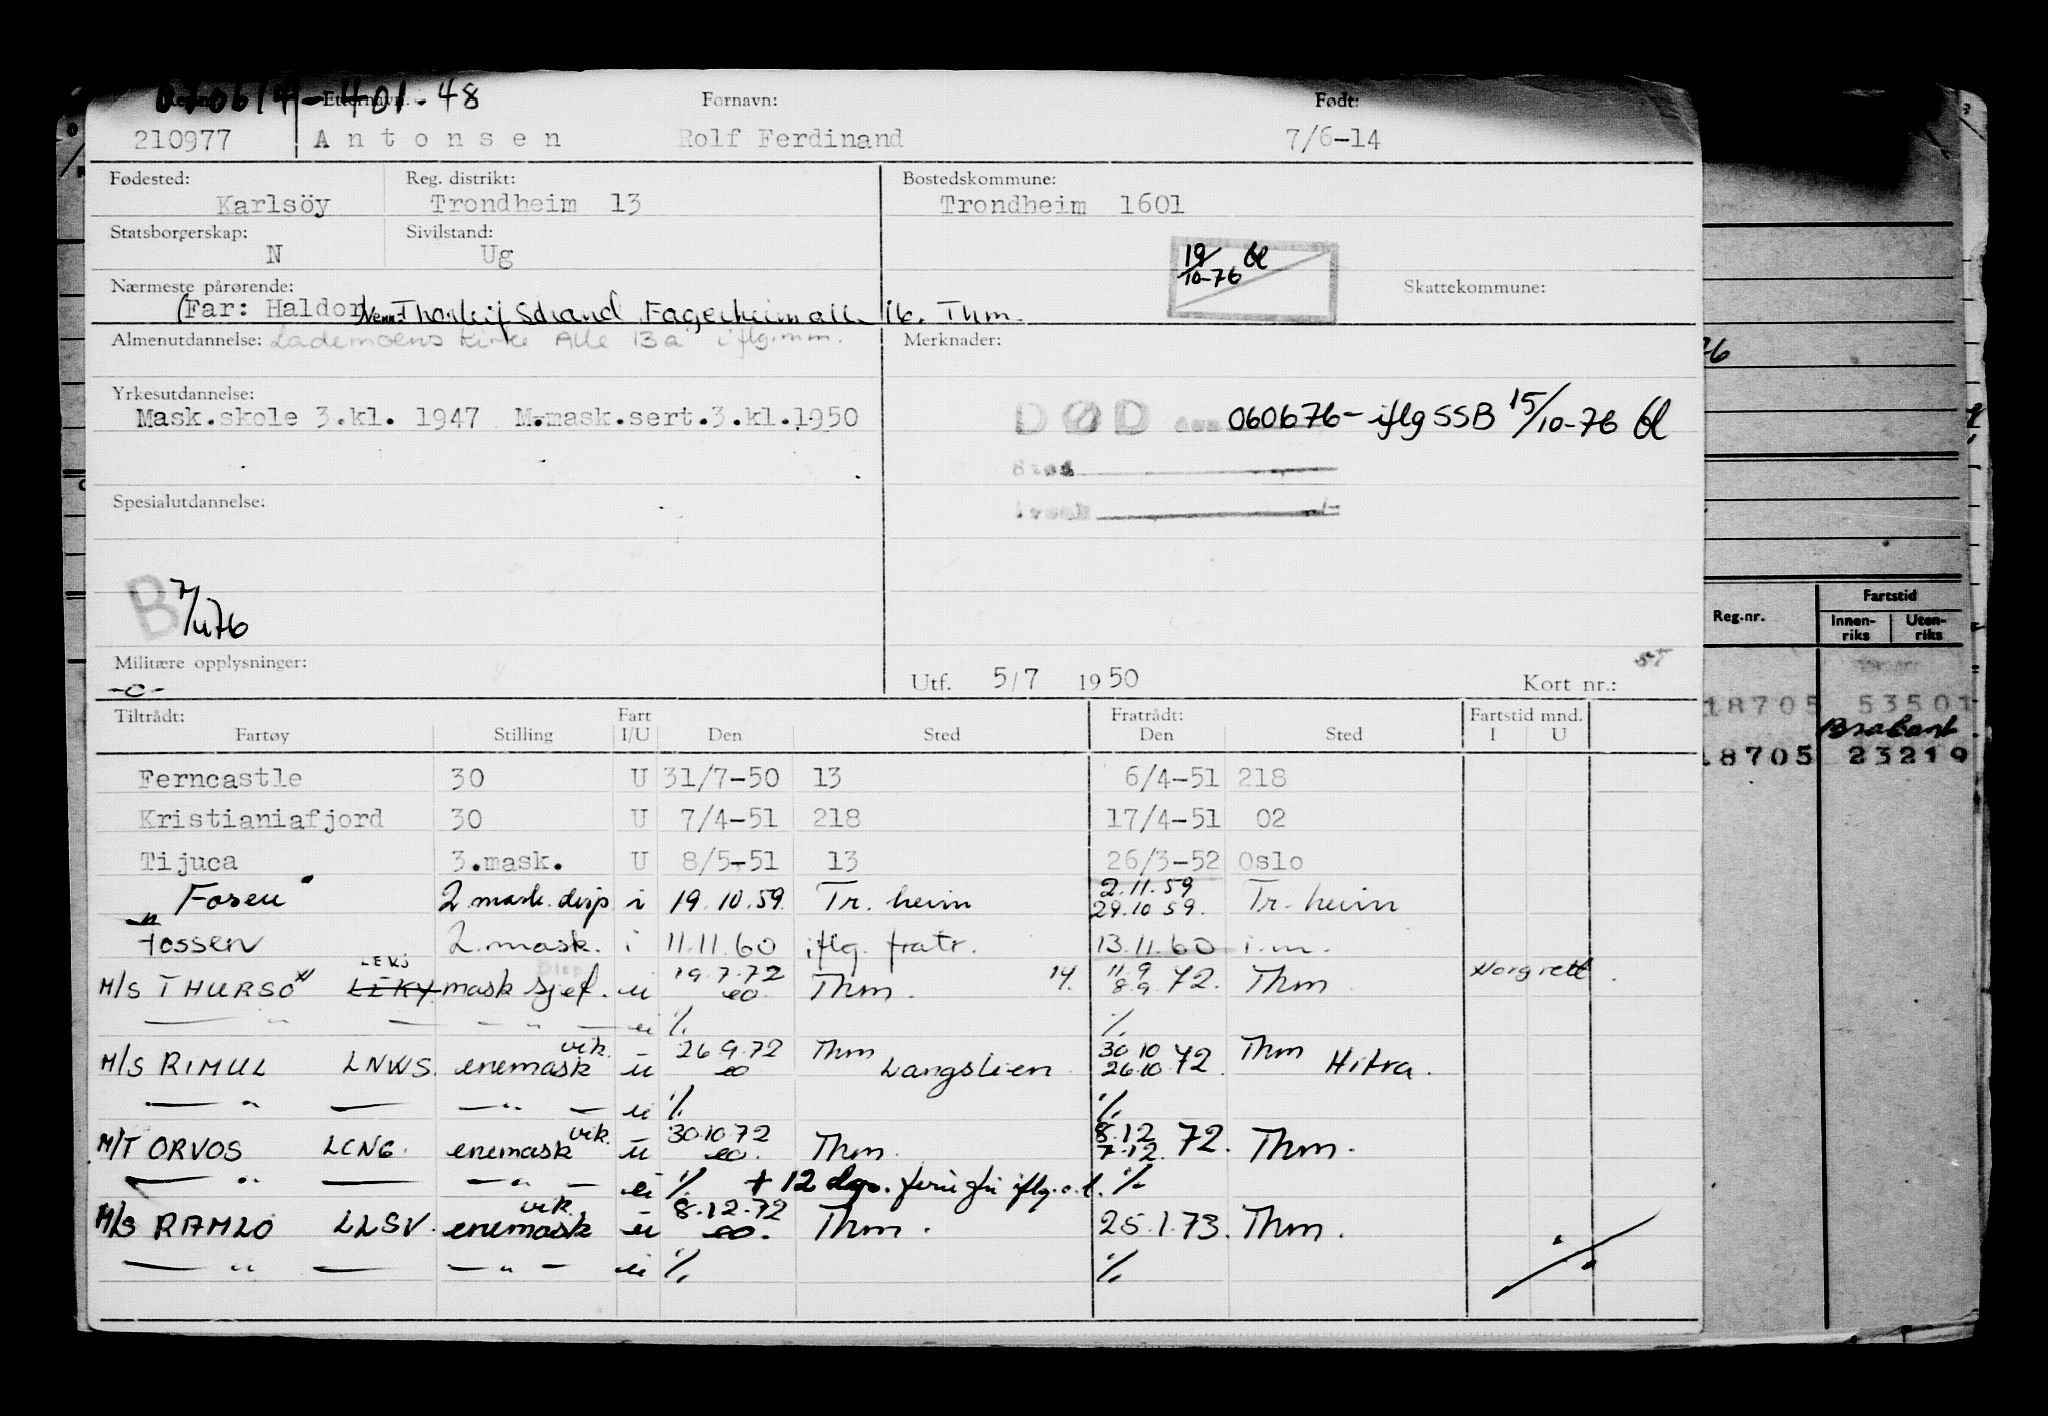 070614-401-48
Etternavn: Fornavn: Født:
210977 Antonsen Rolf Ferdinand 7/6-14
Fødested: Reg. distrikt: Bostedskommune:
Karlsöy Trondheim 13 Trondheim 1601
Statsborgerskap: Sivilstand:
N Ug
19/10-76
Nærmeste pårørende: Skattekommune:
(Far: Haldor Venn: Thorleif Strand, Fagerheim all. 16. Thm.
Almenutdannelse: Lademoens Kirke Alle 13a iflg. mm. Merknader:
Yrkesutdannelse:
Mask.skole 3.kl. 1947 M.mask.sert.3.kl.1950
DØD den 060676- iflg SSB 15/10-76
Sted
Årsak
Spesialutdannelse:
B 7/4 76
Militære opplysninger:
-o-
Utf. 5/7 1950 Kort nr.:
ST
Tiltrådt: Fart Fratrådt: Fartstid mnd.
Fartøy Stilling I/U Den Sted Den Sted I U
Ferncastle 30 U 31/7-50 13 6/4-51 218
Kristianiafjord 30 U 7/4-51 218 17/4-51 02
Tijuca 3.mask. U 8/5-51 13 26/3-52 Oslo
Fosen 2 mask. disp i 19.10.59 Tr.heim 2.11.59 29.10.59. Tr.heim
Fossen 2.mask. i 11.11.60 iflg. fratr. 13.11.60 i.m.
M/S THURSO LEKJ LEKY mask sjef. u 19.7.72 eo. Thm. 14. 11.9 8.9 72. Thm Norg rett.
— " — — " — ei % %
M/S RIMUL LNWS. enemask vik. u 26.9.72 eo Thm Langstien 30.10 26.10 72. Thm Hitra.
— " — — " — ei % %
M/T ORVOS LCNG. enemask vik. u 30.10.72 eo. Thm. 8.12 7.12. 72. Thm.
— " — — " — ei % + 12 dgr. feriegfri iflg. o.t. %
M/S RAMLO LLSV. enemask vik. u 8.12.72 eo. Thm. 25.1.73. Thm.
— " — — " — ei % %
Reg.nr. Fartstid
Innenriks Utenriks
18705 53501
Brabant
18705 23219